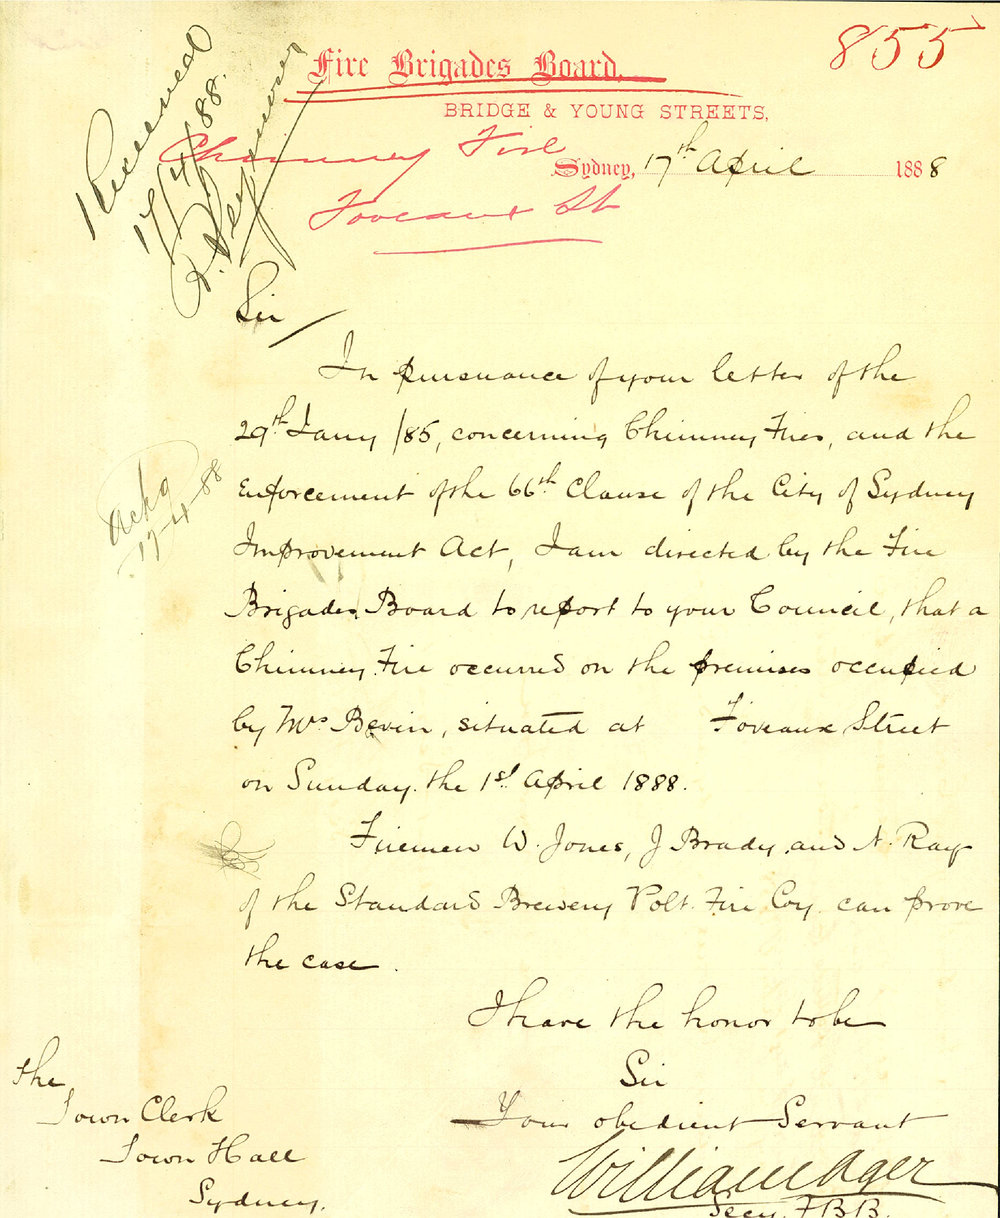 855
Fire Brigades Board.
BRIDGE & YOUNG STREETS,
Chimney Fire
Sydney, 17th April 1888
Foveaux St
Received
17/4/88.
Sir/
In pursuance of your letter of the
29th Jany /85, concerning Chimney Fires, and the
Enforcement of the 66th Clause of the City of Sydney
Improvement Act, I am directed by the Fire
Brigades Board to report to your Council, that a
Chimney Fire occurred on the premises occupied
by Mrs Bevin, situated at Foveaux Street
on Sunday the 1st April 1888.
Firemen W. Jones, J Brady, and A. Ray
of the Standard Brewery Volt. Fire Coy. can prove
the case.
Ackg
17-4-88
I have the honor to be
Sir
Your obedient Servant
William Ager
Secy. F.B.B.
The
Town Clerk
Town Hall
Sydney.